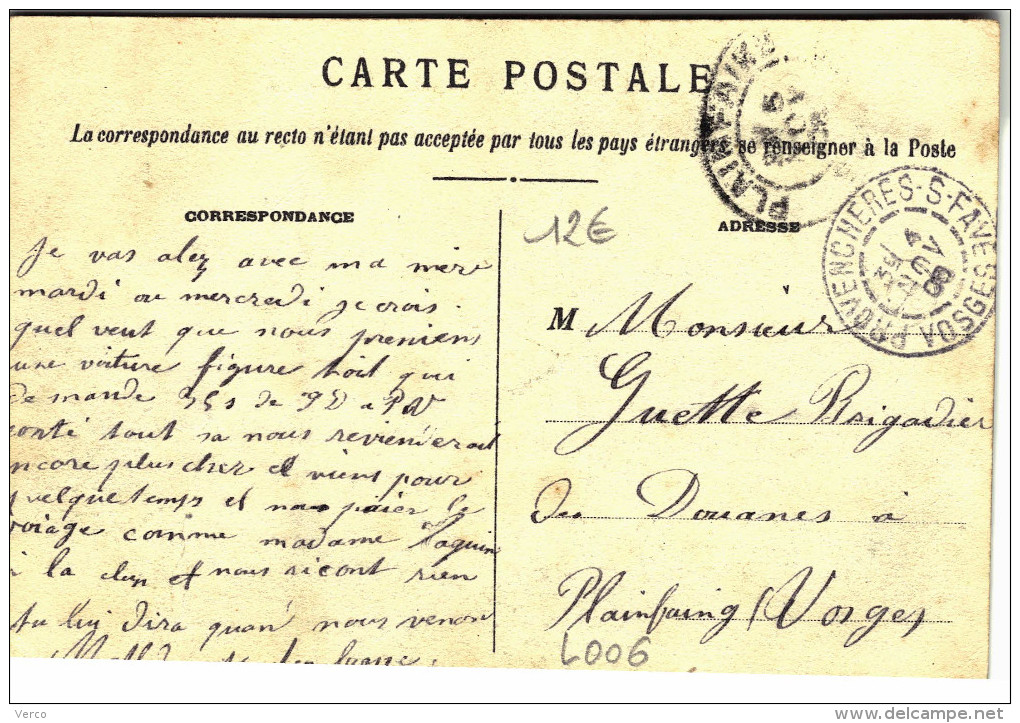 CARTE POSTALE
La correspondance au recto n'étant pas acceptée par tous les pays étrangers, se renseigner à la Poste
PLAINFAING
CORRESPONDANCE
12€
ADRESSE
PROVENCHERES-S-FAVE VOSGES
Je vas alez avec ma mere
mardi ou mercredi je crois
quel veut que nous preniens
une voiture figure toit qui
demande de
tout sa nous reviendrait
ncore plus cher et viens pour
quelque temps et nous paier le
voiage comme madame
la et nous ricont rien
tu lui dira quan nous venon
M Monsieur
Guette Brigadier
des Douanes à
Plainfaing (Vosges)
L006
Verco
delcampe.net